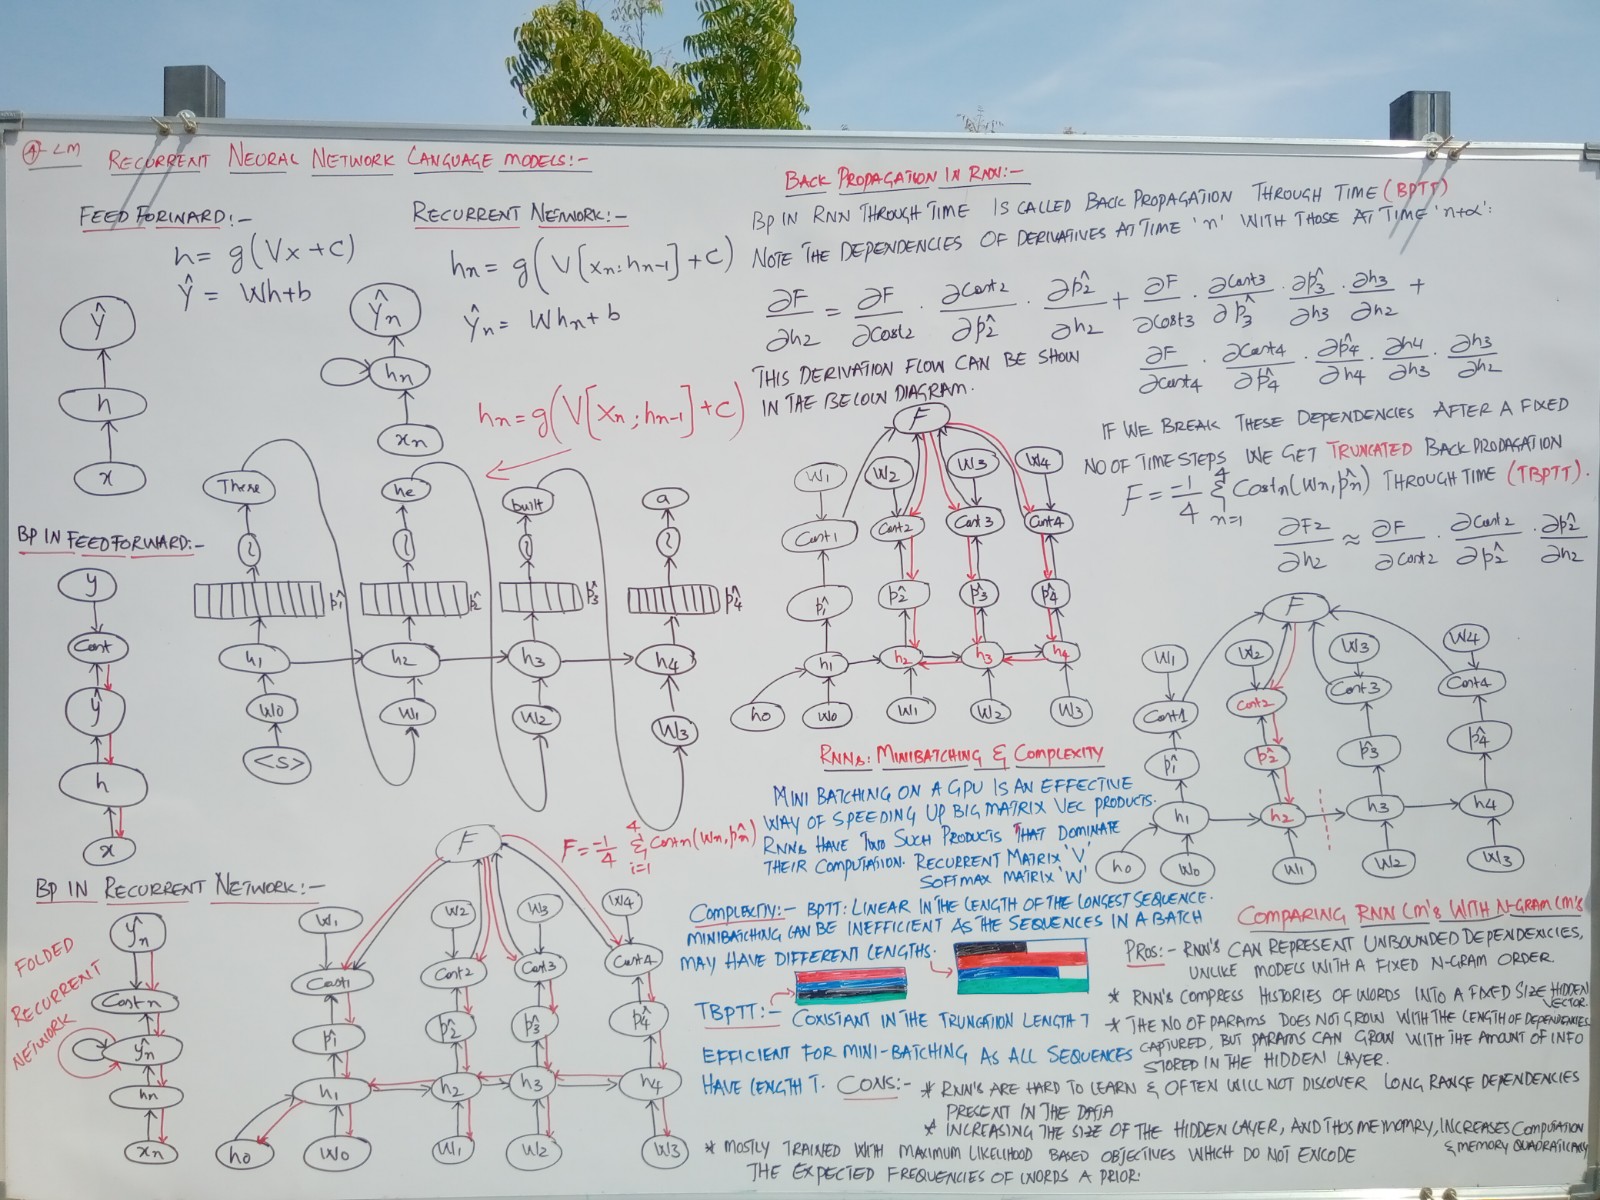 ④-LM
RECURRENT NEURAL NETWORK LANGUAGE MODELS:-
FEED FORWARD:-
h = g(Vx + c)
ŷ = Wh+b
ŷ
h
x
RECURRENT NETWORK:-
hn = g(V[xn; hn-1] + c)
ŷn = Whn + b
ŷn
hn
xn
hn = g(V[xn; hn-1] + c)
There
he
built
a
p̂1
p̂2
p̂3
p̂4
h1
h2
h3
h4
W0
W1
W2
W3
<S>
BP IN FEEDFORWARD:-
y
Cost
ŷ
h
x
BP IN RECURRENT NETWORK:-
FOLDED
RECURRENT
NETWORK
ŷn
Cost n
ŷn
hn
xn
F
F = -1/4 4 Σ i=1 Costn(Wn, p̂n)
W1
W2
W3
W4
Cost1
Cost2
Cost3
Cost4
p̂1
p̂2
p̂3
p̂4
h1
h2
h3
h4
h0
W0
W1
W2
W3
BACK PROPAGATION IN RNN:-
BP IN RNN THROUGH TIME IS CALLED BACK PROPAGATION THROUGH TIME (BPTT)
NOTE THE DEPENDENCIES OF DERIVATIVES AT TIME 'n' WITH THOSE AT TIME 'n+α':
∂F/∂h2 = ∂F/∂cost2 · ∂cost2/∂p̂2 · ∂p̂2/∂h2 + ∂F/∂cost3 · ∂cost3/∂p̂3 · ∂p̂3/∂h3 · ∂h3/∂h2 +
∂F/∂cost4 · ∂cost4/∂p̂4 · ∂p̂4/∂h4 · ∂h4/∂h3 · ∂h3/∂h2
THIS DERIVATION FLOW CAN BE SHOWN
IN THE BELOW DIAGRAM.
F
W1
W2
W3
W4
Cost1
Cost2
Cost3
Cost4
p̂1
p̂2
p̂3
p̂4
h1
h2
h3
h4
h0
W0
W1
W2
W3
IF WE BREAK THESE DEPENDENCIES AFTER A FIXED
NO OF TIME STEPS WE GET TRUNCATED BACK PROPAGATION
F = -1/4 4 Σ n=1 Costn(Wn, p̂n) THROUGH TIME (TBPTT).
∂F2/∂h2 ≈ ∂F/∂cost2 · ∂cost2/∂p̂2 · ∂p̂2/∂h2
F
W1
W2
W3
W4
Cost1
Cost2
Cost3
Cost4
p̂1
p̂2
p̂3
p̂4
h1
h2
h3
h4
h0
W0
W1
W2
W3
RNNs: MINIBATCHING & COMPLEXITY
MINI BATCHING ON A GPU IS AN EFFECTIVE
WAY OF SPEEDING UP BIG MATRIX VEC PRODUCTS.
RNNs HAVE TWO SUCH PRODUCTS THAT DOMINATE
THEIR COMPUTATION. RECURRENT MATRIX 'V'
SOFTMAX MATRIX 'W'
COMPLEXITY:- BPTT: LINEAR IN THE LENGTH OF THE LONGEST SEQUENCE.
MINIBATCHING CAN BE INEFFICIENT AS THE SEQUENCES IN A BATCH
MAY HAVE DIFFERENT LENGTHS.
TBPTT:-
COXISTANT IN THE TRUNCATION LENGTH T
EFFICIENT FOR MINI-BATCHING AS ALL SEQUENCES
HAVE LENGTH T.
COMPARING RNN LM's WITH N-GRAM LM's
PROS:- RNN'S CAN REPRESENT UNBOUNDED DEPENDENCIES,
UNLIKE MODELS WITH A FIXED N-GRAM ORDER.
* RNN'S COMPRESS HISTORIES OF WORDS INTO A FIXED SIZE HIDDEN
VECTOR
* THE NO OF PARAMS DOES NOT GROW WITH THE LENGTH OF DEPENDENCIES
CAPTURED, BUT PARAMS CAN GROW WITH THE AMOUNT OF INFO
STORED IN THE HIDDEN LAYER.
CONS:- * RNN'S ARE HARD TO LEARN & OFTEN WILL NOT DISCOVER LONG RANGE DEPENDENCIES
PRESENT IN THE DATA
* INCREASING THE SIZE OF THE HIDDEN LAYER, AND THOS MEMOMRY, INCREASES COMPUTATION
& MEMORY QUADRATICALLY
* MOSTLY TRAINED WITH MAXIMUM LIKELIHOOD BASED OBJECTIVES WHICH DO NOT ENCODE
THE EXPECTED FREQUENCIES OF WORDS A PRIOR.